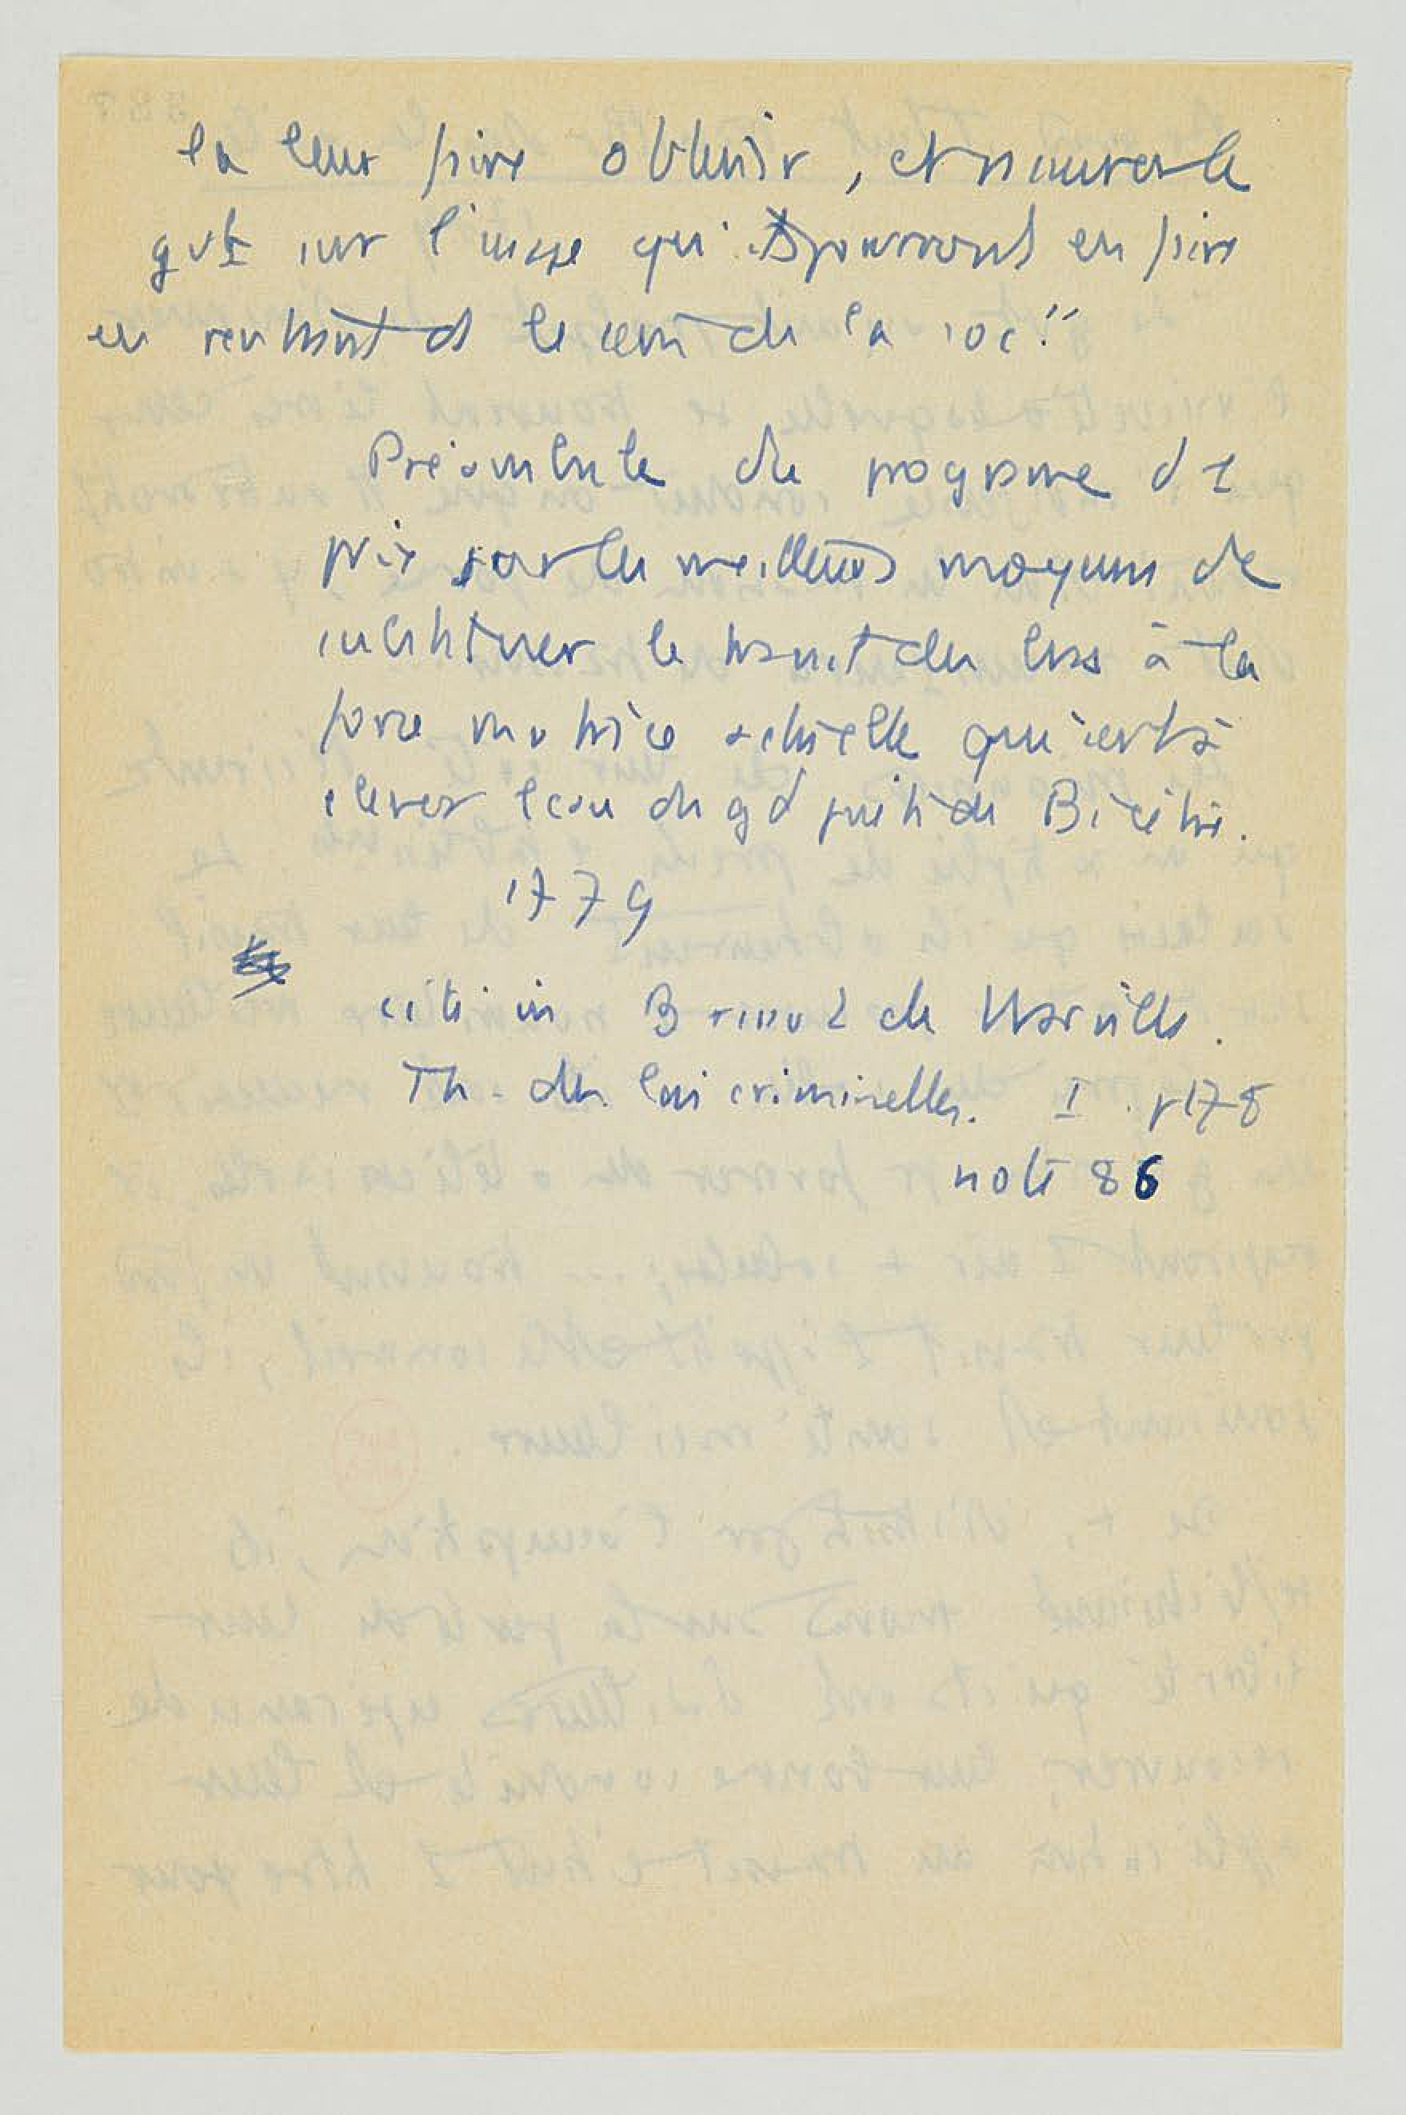 la leur faire obtenir, et rassurer le
gvt sur l'usage qu'ils pourront en faire
en rentrant ds le sein de la soc."
Préambule du programme d 1
prix sur les meilleurs moyens de
substituer le travail des bras à la
force motrice actuelle qui sert à
elever l'eau du gd puits de Bicêtre.
1779
cité in Brissot de Warville.
Th. des lois criminelles. I. p178
note 86